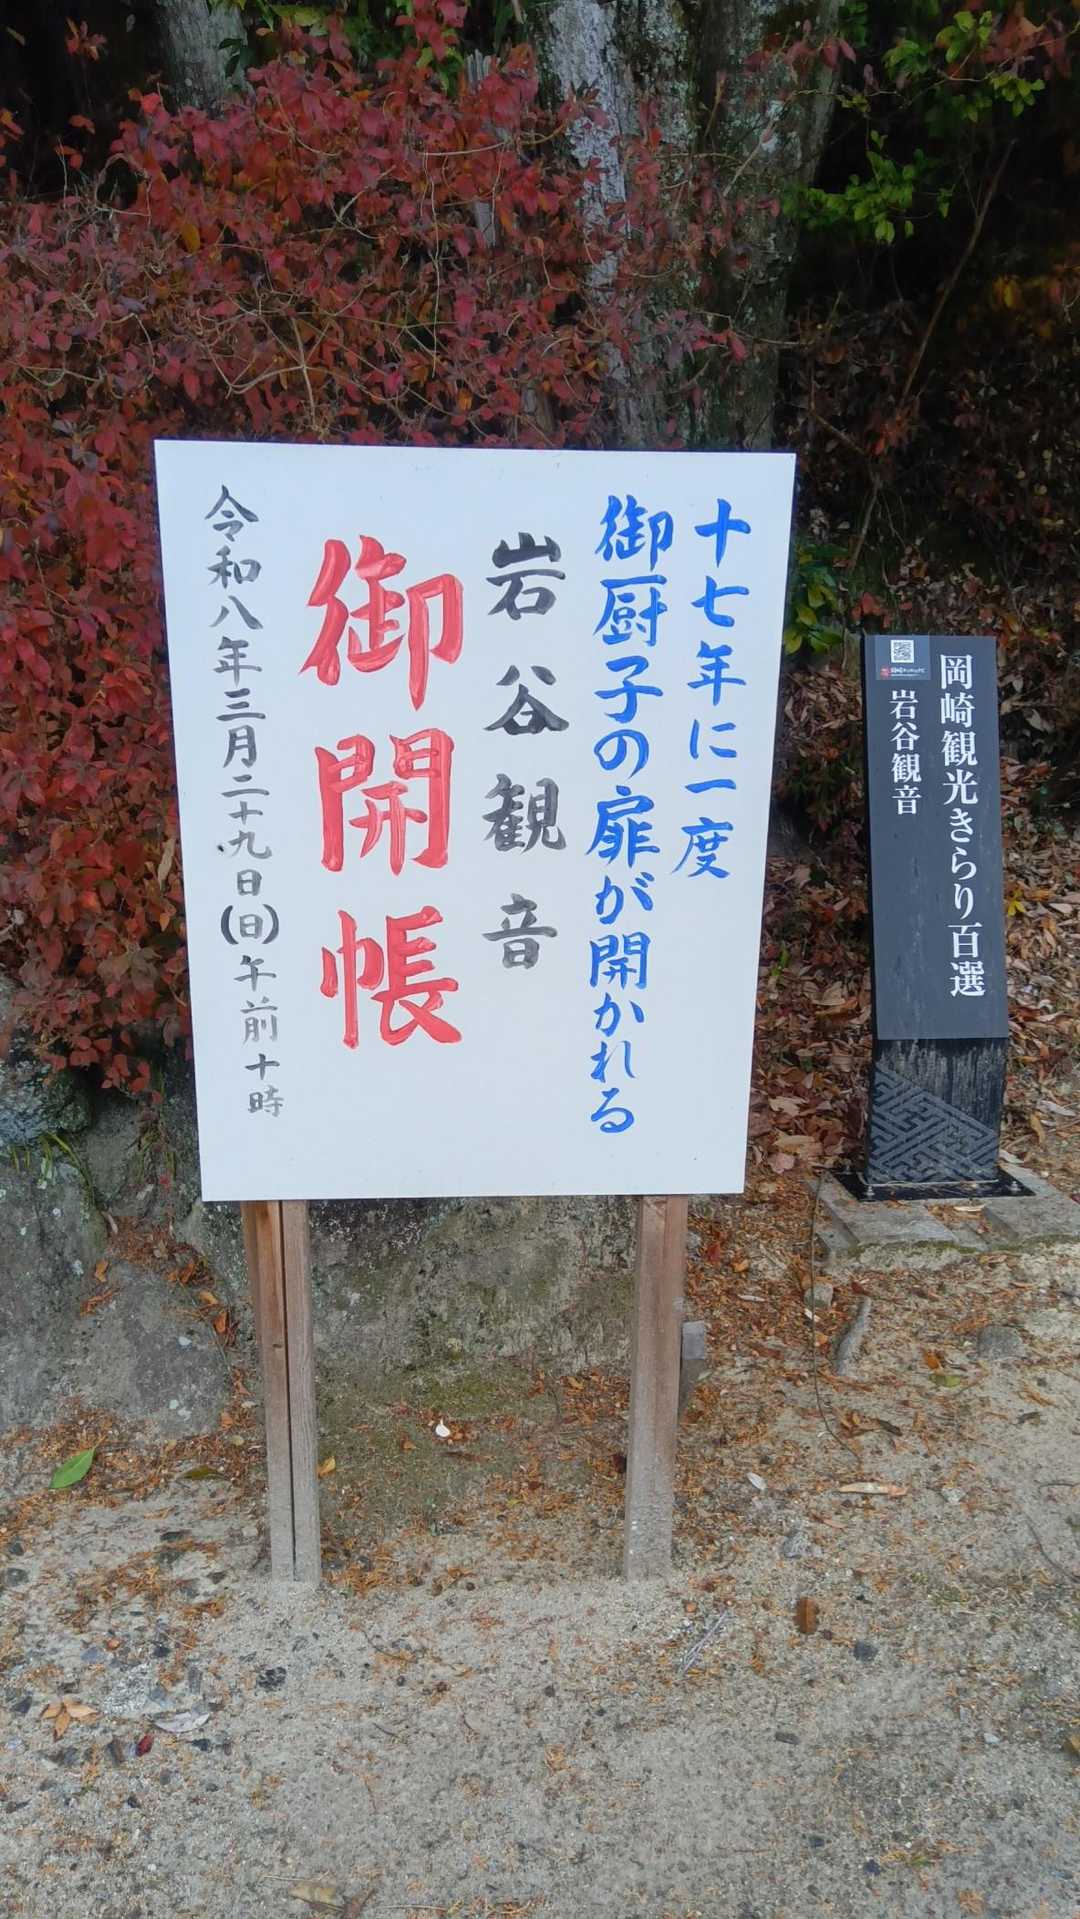 十七年に一度
御厨子の扉が開かれる
岩谷観音
御開帳
令和八年三月二十九日(日)午前十時
岡崎観光きらり百選
岩谷観音